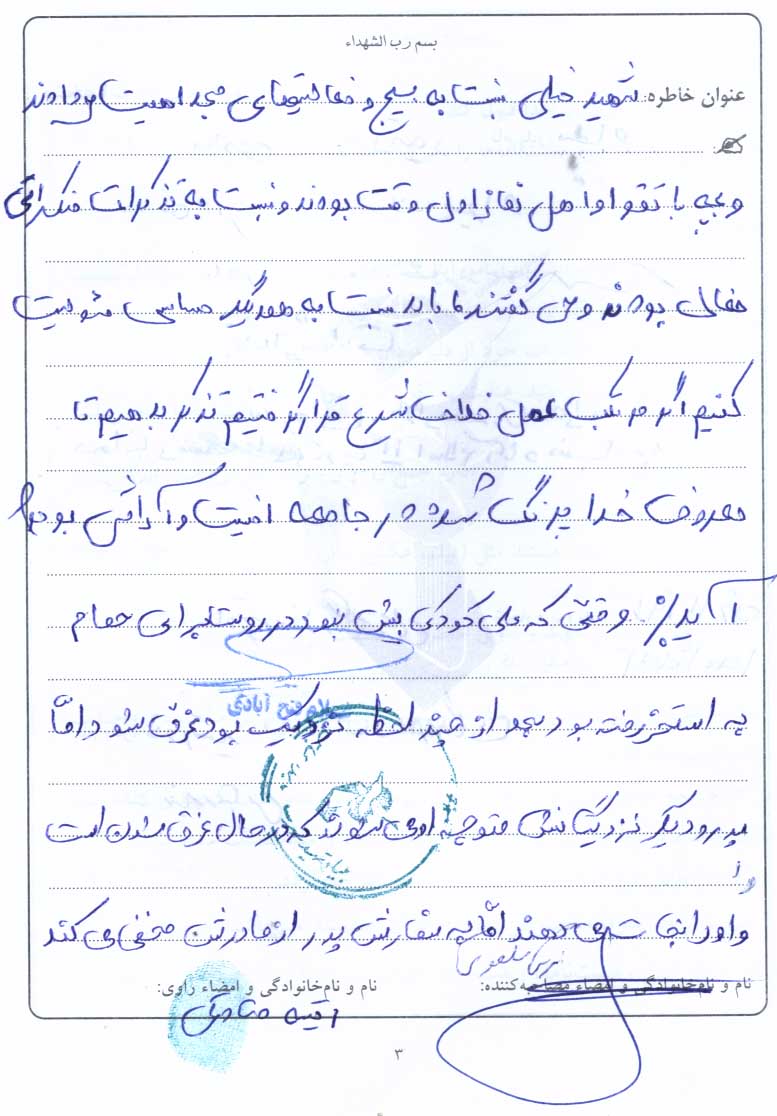 بسم رب الشهداء
عنوان خاطره: شهید خیلی نسبت به بسیج و فعالیتهای مسجد اهمیت می‌دادند
و بچه با تقوا و اهل نماز اول وقت بودند و نسبت به تذکرات
فعال بودند و می گفتند ما باید نسبت به همدیگر حساس مسئولیت
کنیم اگر مرتکب عمل خلاف شرع قرار گرفتیم تذکر بدهیم تا
معروف خدا پررنگ شده در جامعه امنیت و آرامش بوجود
آید. وقتی که علی کودکی بیش نبود در روستا برای حمام
به استخر رفته بود بعد از چند لحظه نزدیک بود غرق شود امّا
پدر و دیگر نزدیکانش متوجه او می شوند که در حال غرق شدن است
و او را نجات می دهند امّا به سفارش پدر از مادرش مخفی می کنند
نام و نام‌خانوادگی و امضاء مصاحبه‌کننده:
نام و نام‌خانوادگی و امضاء راوی:
فتح آبادی
۳